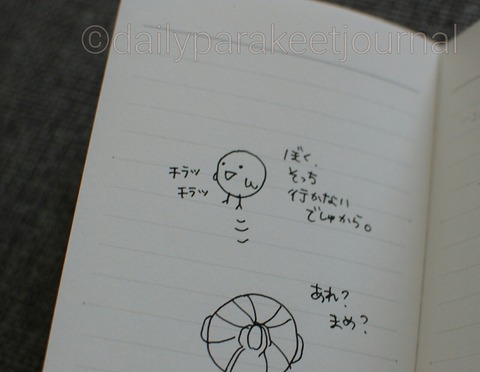 ©dailyparakeetjournal
ぼく、
そっち
行かない
でしゅから。
チラッ
チラッ
あれ?
まめ?